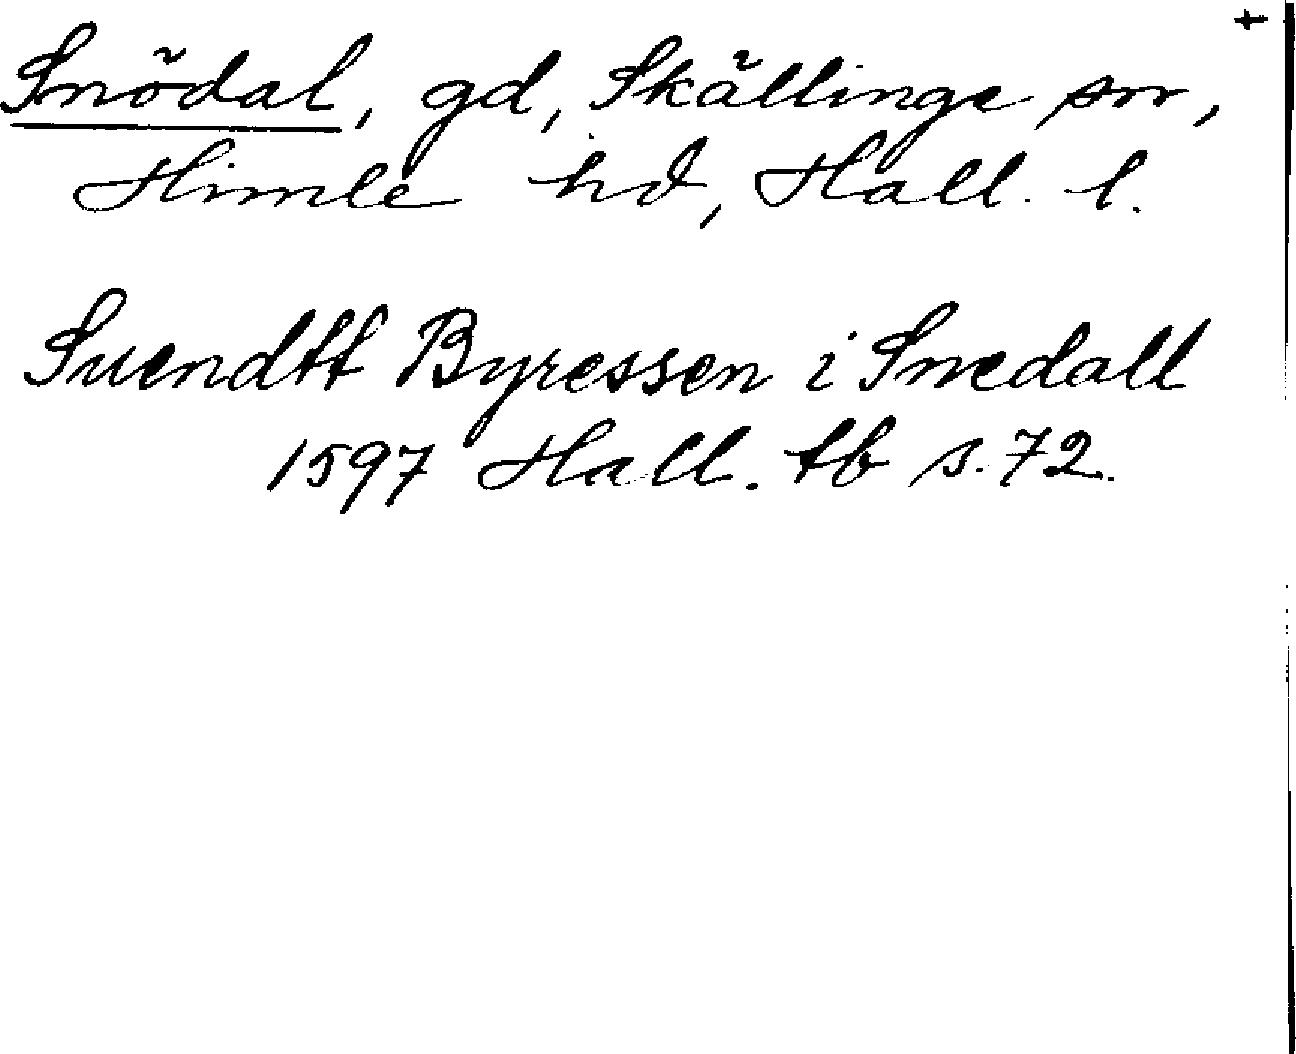 +
Snödal, gd, Skällinge sn,
Himle hd, Hall. l.
Suendtt Byressen i Snedall
1597 Hall. tb s. 72.